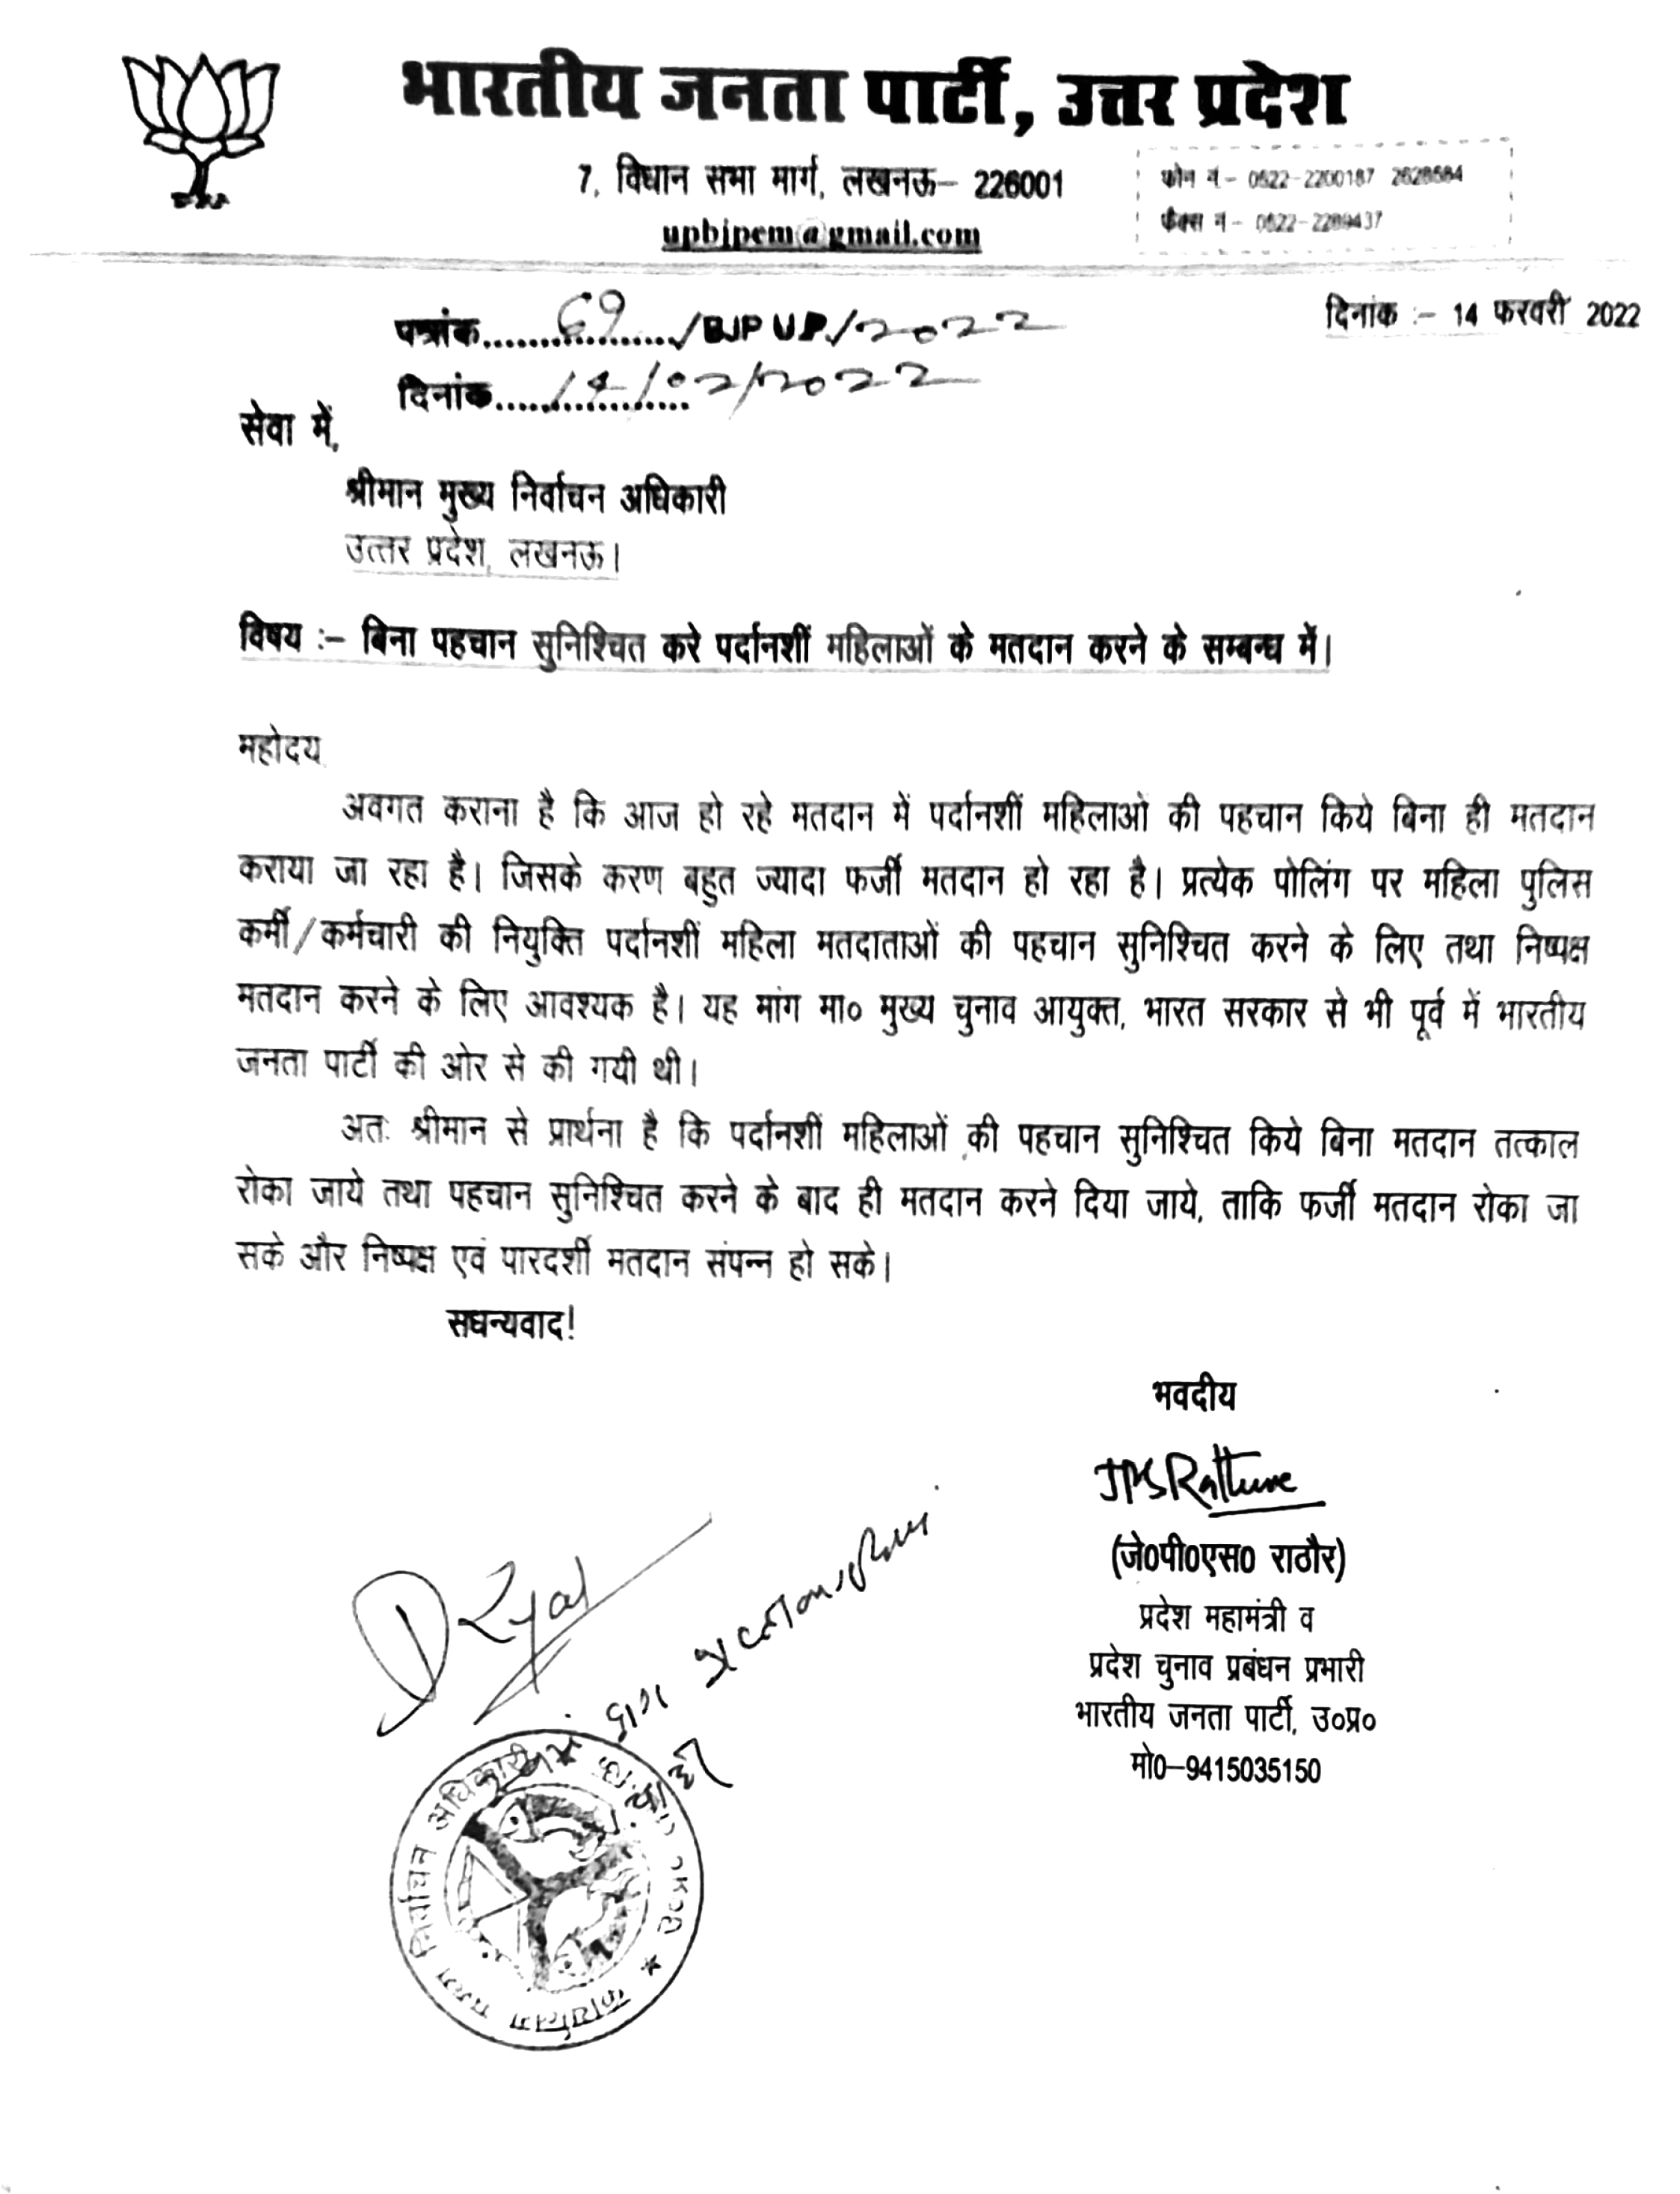 भारतीय जनता पार्टी, उत्तर प्रदेश
7, विधान सभा मार्ग, लखनऊ– 226001
upbjpem@gmail.com
फोन नं– 0522-2200187 2628684
फैक्स नं– 0522-2289437
पत्रांक................./BJP U.P./2022
दिनांक.................14/02/2022
दिनांक :– 14 फरवरी 2022
सेवा में,
श्रीमान मुख्य निर्वाचन अधिकारी
उत्तर प्रदेश, लखनऊ।
विषय :– बिना पहचान सुनिश्चित करे पर्दानशीं महिलाओं के मतदान करने के सम्बन्ध में।
महोदय
अवगत कराना है कि आज हो रहे मतदान में पर्दानशीं महिलाओं की पहचान किये बिना ही मतदान
कराया जा रहा है। जिसके करण बहुत ज्यादा फर्जी मतदान हो रहा है। प्रत्येक पोलिंग पर महिला पुलिस
कर्मी/कर्मचारी की नियुक्ति पर्दानशीं महिला मतदाताओं की पहचान सुनिश्चित करने के लिए तथा निष्पक्ष
मतदान करने के लिए आवश्यक है। यह मांग मा० मुख्य चुनाव आयुक्त, भारत सरकार से भी पूर्व में भारतीय
जनता पार्टी की ओर से की गयी थी।
अतः श्रीमान से प्रार्थना है कि पर्दानशीं महिलाओं की पहचान सुनिश्चित किये बिना मतदान तत्काल
रोका जाये तथा पहचान सुनिश्चित करने के बाद ही मतदान करने दिया जाये, ताकि फर्जी मतदान रोका जा
सके और निष्पक्ष एवं पारदर्शी मतदान संपन्न हो सके।
सधन्यवाद!
भवदीय
JPS Rathore
(जे0पी0एस0 राठौर)
प्रदेश महामंत्री व
प्रदेश चुनाव प्रबंधन प्रभारी
भारतीय जनता पार्टी, उ०प्र०
मो0–9415035150
कार्यालय मुख्य निर्वाचन अधिकारी